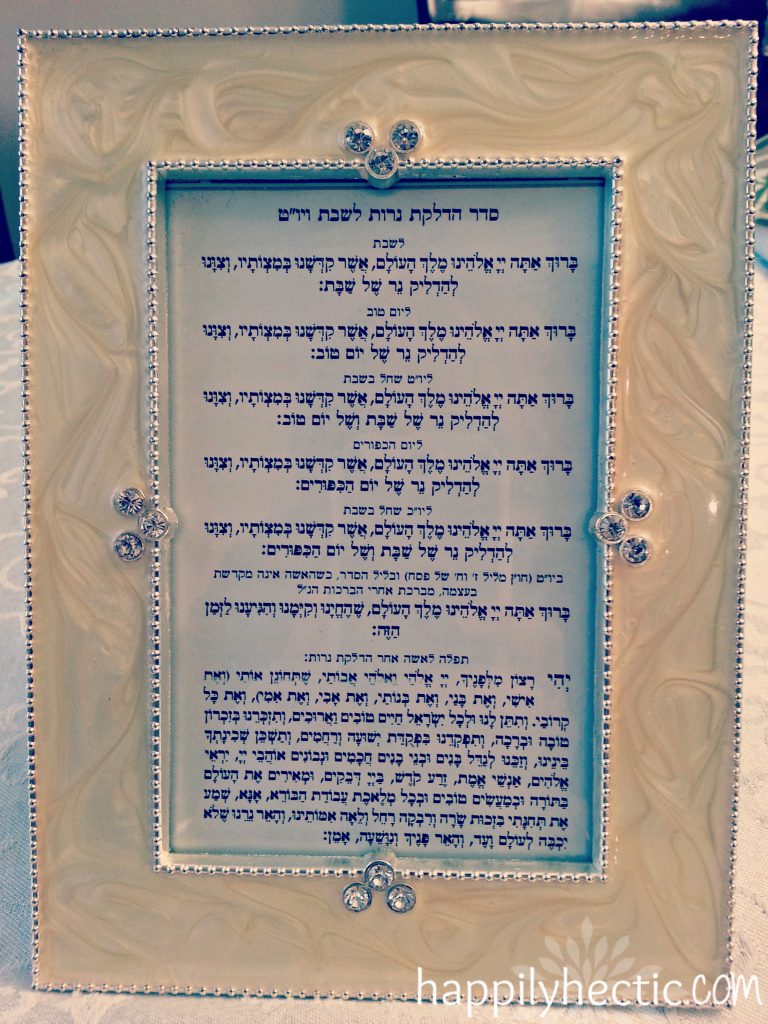 סדר הדלקת נרות לשבת ויו"ט
לשבת
בָּרוּךְ אַתָּה יְיָ אֱלֹהֵינוּ מֶלֶךְ הָעוֹלָם, אֲשֶׁר קִדְּשָׁנוּ בְּמִצְוֹתָיו, וְצִוָּנוּ
לְהַדְלִיק נֵר שֶׁל שַׁבָּת:
ליום טוב
בָּרוּךְ אַתָּה יְיָ אֱלֹהֵינוּ מֶלֶךְ הָעוֹלָם, אֲשֶׁר קִדְּשָׁנוּ בְּמִצְוֹתָיו, וְצִוָּנוּ
לְהַדְלִיק נֵר שֶׁל יוֹם טוֹב:
ליו"ט שחל בשבת
בָּרוּךְ אַתָּה יְיָ אֱלֹהֵינוּ מֶלֶךְ הָעוֹלָם, אֲשֶׁר קִדְּשָׁנוּ בְּמִצְוֹתָיו, וְצִוָּנוּ
לְהַדְלִיק נֵר שֶׁל שַׁבָּת וְשֶׁל יוֹם טוֹב:
ליום הכפורים
בָּרוּךְ אַתָּה יְיָ אֱלֹהֵינוּ מֶלֶךְ הָעוֹלָם, אֲשֶׁר קִדְּשָׁנוּ בְּמִצְוֹתָיו, וְצִוָּנוּ
לְהַדְלִיק נֵר שֶׁל יוֹם הַכִּפּוּרִים:
ליו"כ שחל בשבת
בָּרוּךְ אַתָּה יְיָ אֱלֹהֵינוּ מֶלֶךְ הָעוֹלָם, אֲשֶׁר קִדְּשָׁנוּ בְּמִצְוֹתָיו, וְצִוָּנוּ
לְהַדְלִיק נֵר שֶׁל שַׁבָּת וְשֶׁל יוֹם הַכִּפּוּרִים:
ביו"ט (חוץ מליל ז' וח' של פסח) ובליל הסדר, כשהאשה אינה מקדשת
בעצמה, מברכת אחרי הברכות הנ"ל
בָּרוּךְ אַתָּה יְיָ אֱלֹהֵינוּ מֶלֶךְ הָעוֹלָם, שֶׁהֶחֱיָנוּ וְקִיְּמָנוּ וְהִגִּיעָנוּ לַזְּמַן
הַזֶּה:
תפלה לאשה אחר הדלקת נרות:
יְהִי רָצוֹן מִלְּפָנֶיךָ, יְיָ אֱלֹהַי וֵאלֹהֵי אֲבוֹתַי, שֶׁתְּחוֹנֵן אוֹתִי (וְאֶת
אִישִׁי, וְאֶת בָּנַי, וְאֶת בְּנוֹתַי, וְאֶת אָבִי, וְאֶת אִמִּי), וְאֶת כָּל
קְרוֹבַי. וְתִתֵּן לָנוּ וּלְכָל יִשְׂרָאֵל חַיִּים טוֹבִים וַאֲרוּכִּים, וְתִזְכְּרֵנוּ בְּזִכְרוֹן
טוֹבָה וּבְרָכָה, וְתִפְקְדֵנוּ בִּפְקֻדַּת יְשׁוּעָה וְרַחֲמִים, וְתַשְׁכֵּן שְׁכִינָתְךָ
בֵּינֵינוּ, וְזַכֵּנוּ לְגַדֵּל בָּנִים וּבְנֵי בָנִים חֲכָמִים וּנְבוֹנִים אוֹהֲבֵי יְיָ, יִרְאֵי
אֱלֹהִים, אַנְשֵׁי אֱמֶת, זֶרַע קֹדֶשׁ, בַּיְיָ דְּבֵקִים, וּמְאִירִים אֶת הָעוֹלָם
בַּתּוֹרָה וּבְמַעֲשִׂים טוֹבִים וּבְכָל מְלֶאכֶת עֲבוֹדַת הַבּוֹרֵא, אָנָּא, שְׁמַע
אֶת תְּחִנָּתִי בִּזְכוּת שָׂרָה וְרִבְקָה רָחֵל וְלֵאָה אִמּוֹתֵינוּ, וְהָאֵר נֵרֵנוּ שֶׁלֹּא
יִכְבֶּה לְעוֹלָם וָעֶד, וְהָאֵר פָּנֶיךָ וְנִוָּשֵׁעָה, אָמֵן:
happilyhectic.com